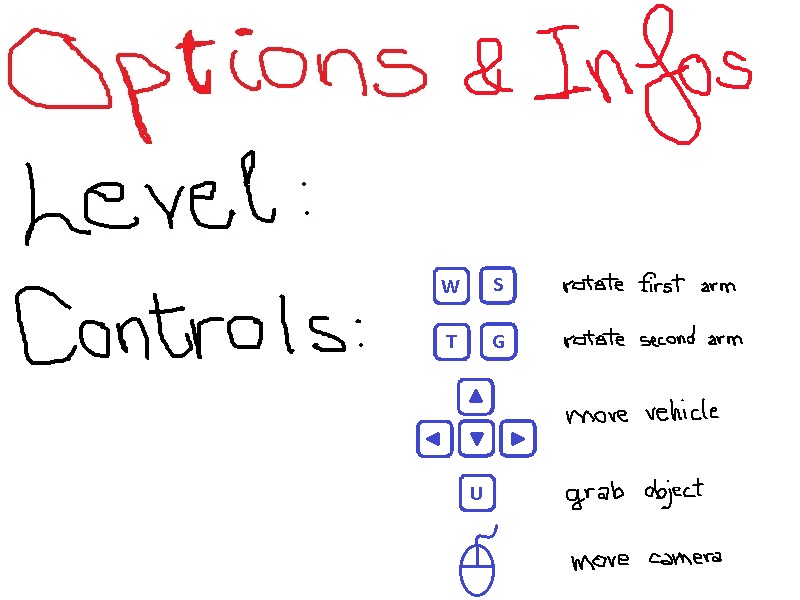 Options & Infos
Level:
Controls:
W S rotate first arm
T G rotate second arm
▲
◀ ▼ ▶ move vehicle
U grab object
move camera